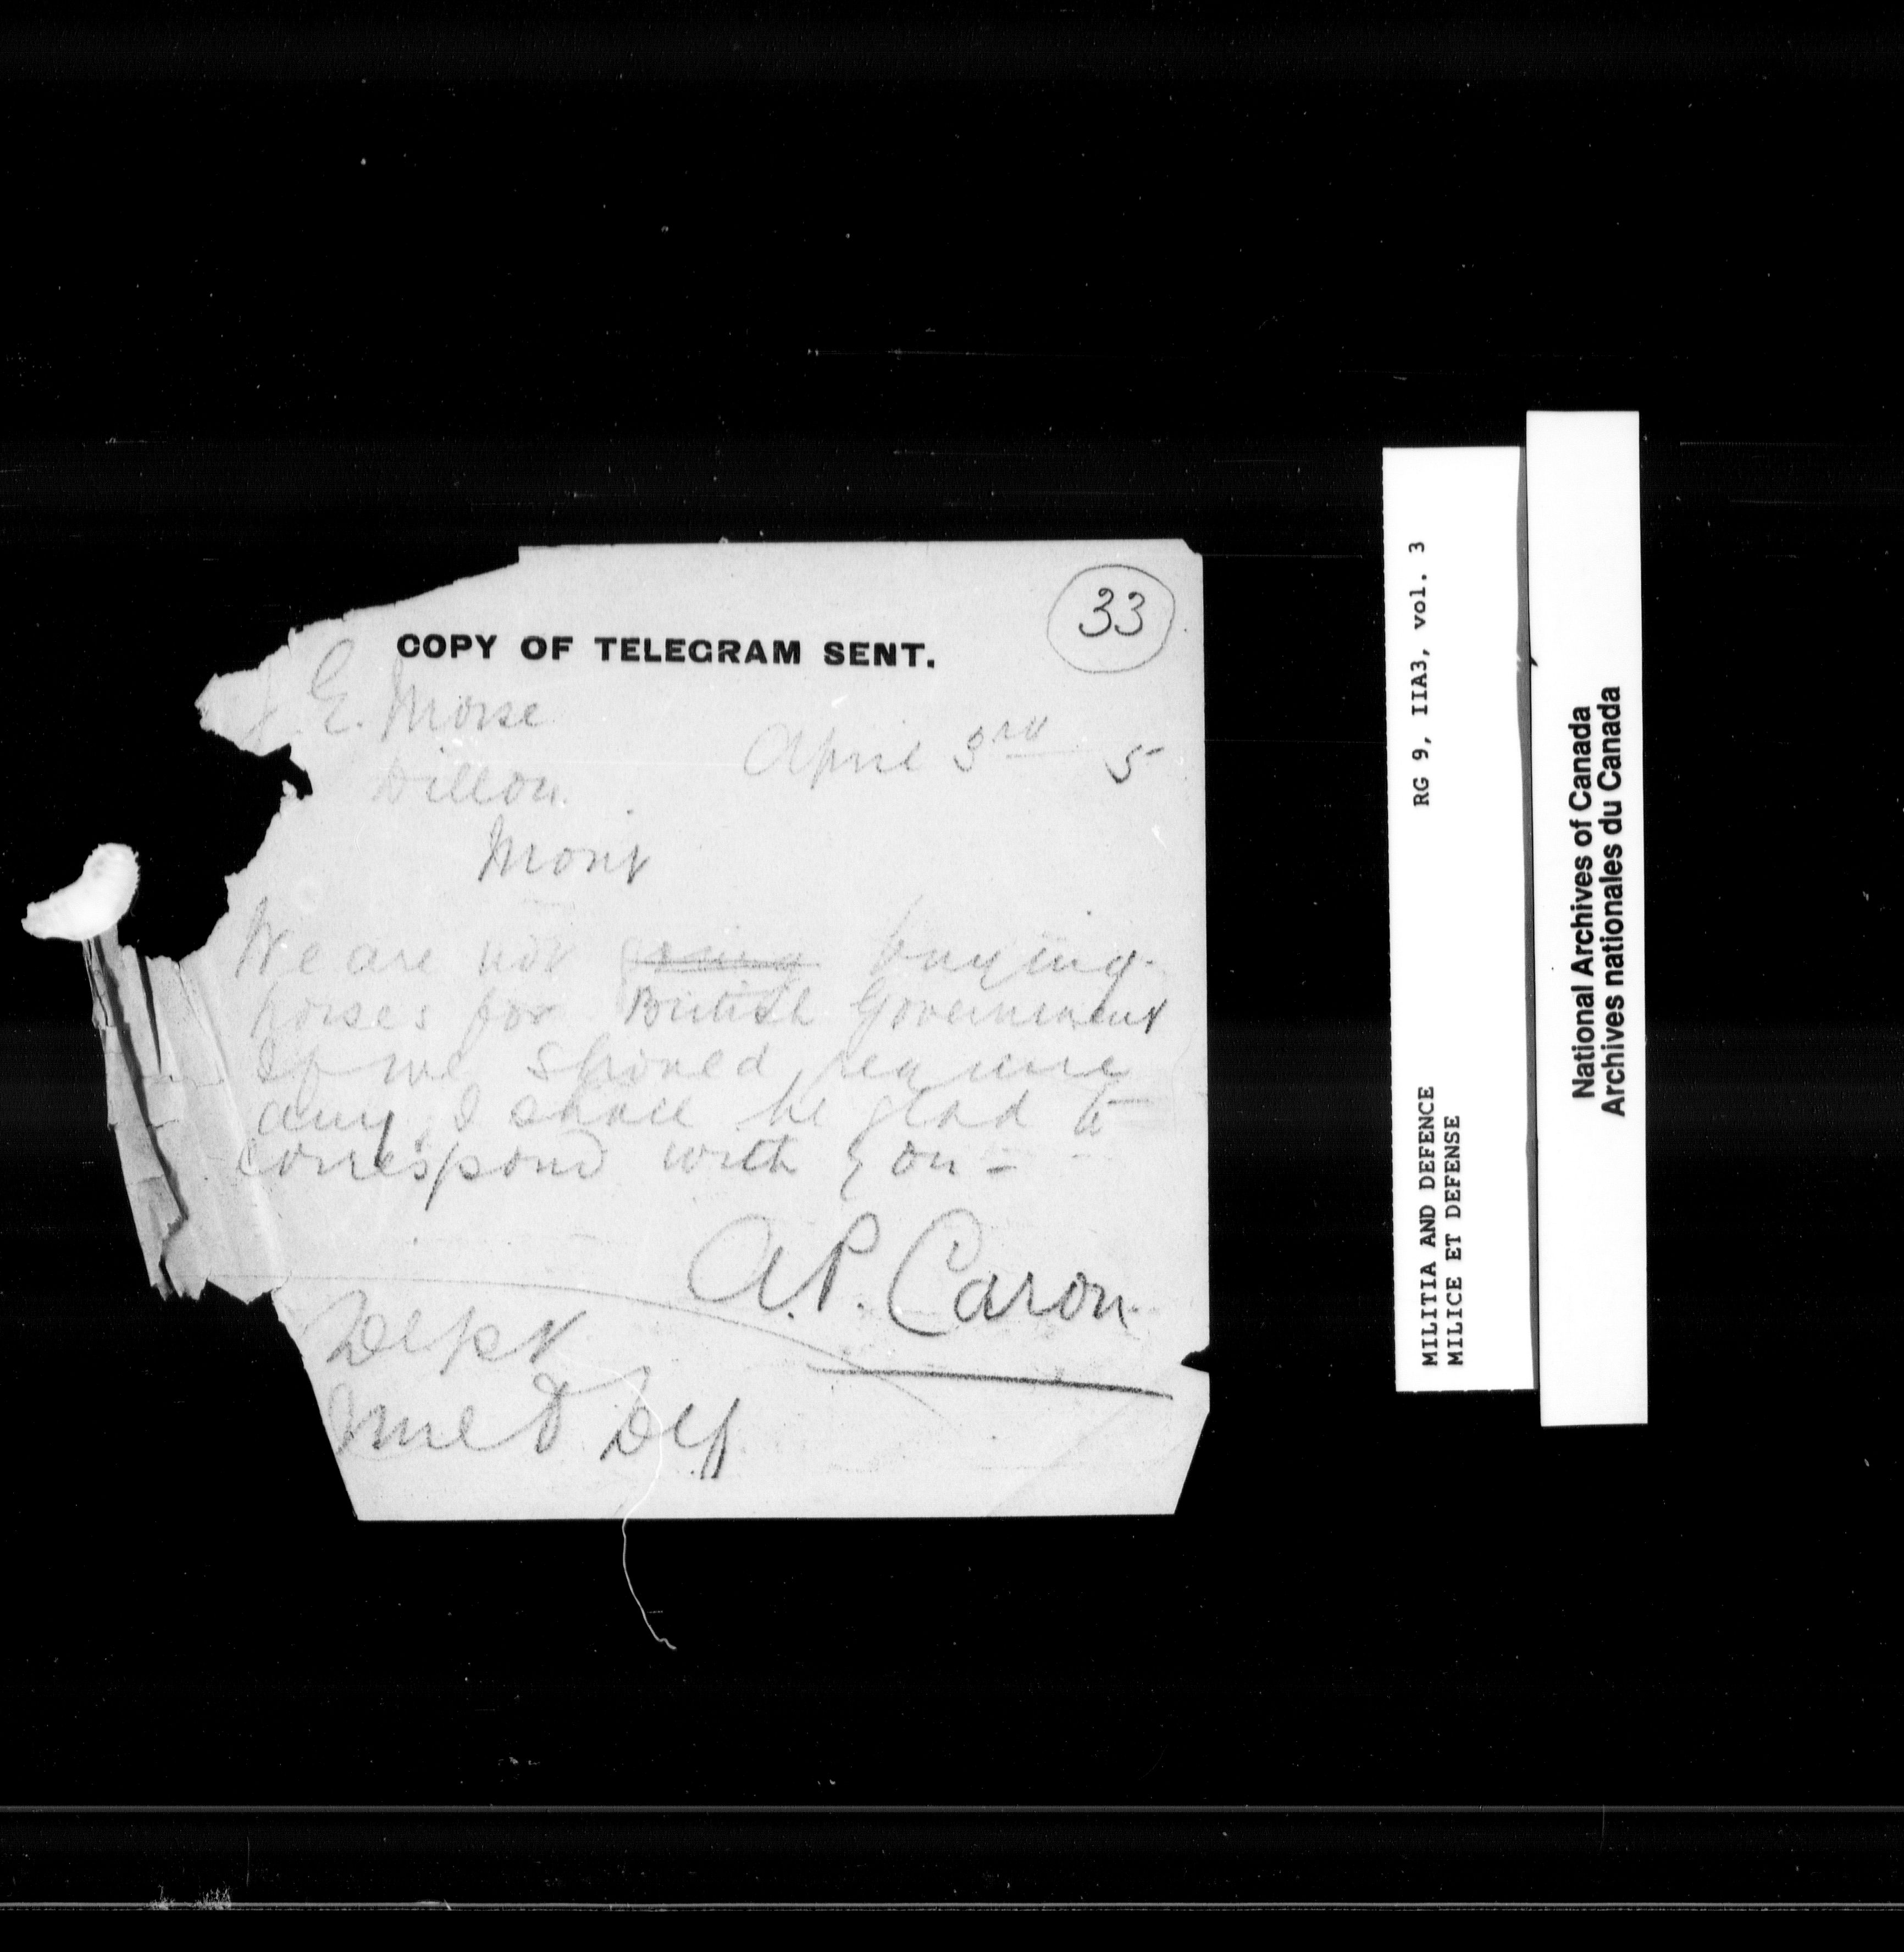 33
COPY OF TELEGRAM SENT.
E. Morse
Dillon
April 3rd 5
Mont
We are not buying
horses for British Government
If we should require
any, I shall be glad to
correspond with you -
A.P. Caron
Dept
M & Def
RG 9, IIA3, vol. 3
MILITIA AND DEFENCE
MILICE ET DEFENSE
National Archives of Canada
Archives nationales du Canada